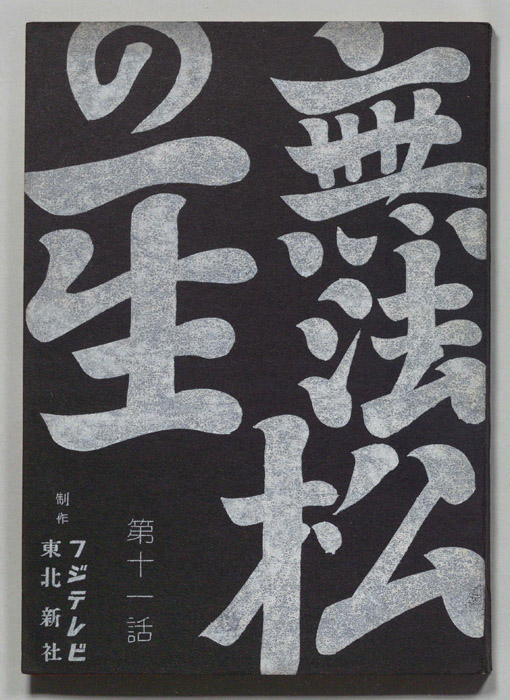 無法松
の一生
第十一話
制作
フジテレビ
東北新社